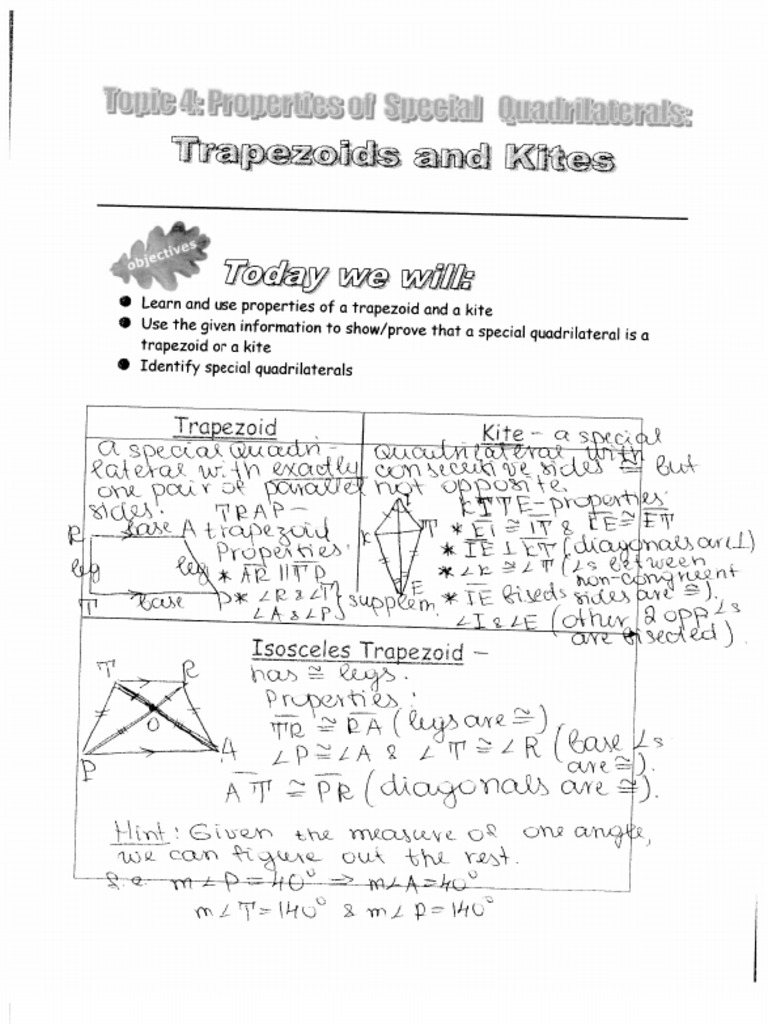 Topic 4: Properties of Special Quadrilaterals:
Trapezoids and Kites
objectives
Today we will:
Learn and use properties of a trapezoid and a kite
Use the given information to show/prove that a special quadrilateral is a
trapezoid or a kite
Identify special quadrilaterals
Trapezoid
a special quadri-
lateral with exactly
one pair of parallel
sides.
TRAP-
A trapezoid
Properties:
* AR || TP
* ∠R & ∠T } supplem.
∠A & ∠P
R
base
leg
leg
T
base
P
Kite - a special
quadrilateral with
consecutive sides ≅ but
not opposite.
KITE-properties:
* KI ≅ IT & KE ≅ ET
* IE ⊥ KT (diagonals are ⊥)
* ∠K ≅ ∠T (∠s between
non-congruent
sides are ≅).
* IE bisects
∠I & ∠E (other 2 opp ∠s
are bisected).
I
K
T
E
Isosceles Trapezoid -
has ≅ legs.
Properties:
TR ≅ RA (legs are ≅)
∠P ≅ ∠A & ∠T ≅ ∠R (base ∠s
are ≅).
AT ≅ PR (diagonals are ≅).
T
R
O
P
A
Hint: Given the measure of one angle,
we can figure out the rest.
m∠P = 40° ⇒ m∠A = 40°
m∠T = 140° & m∠R = 140°